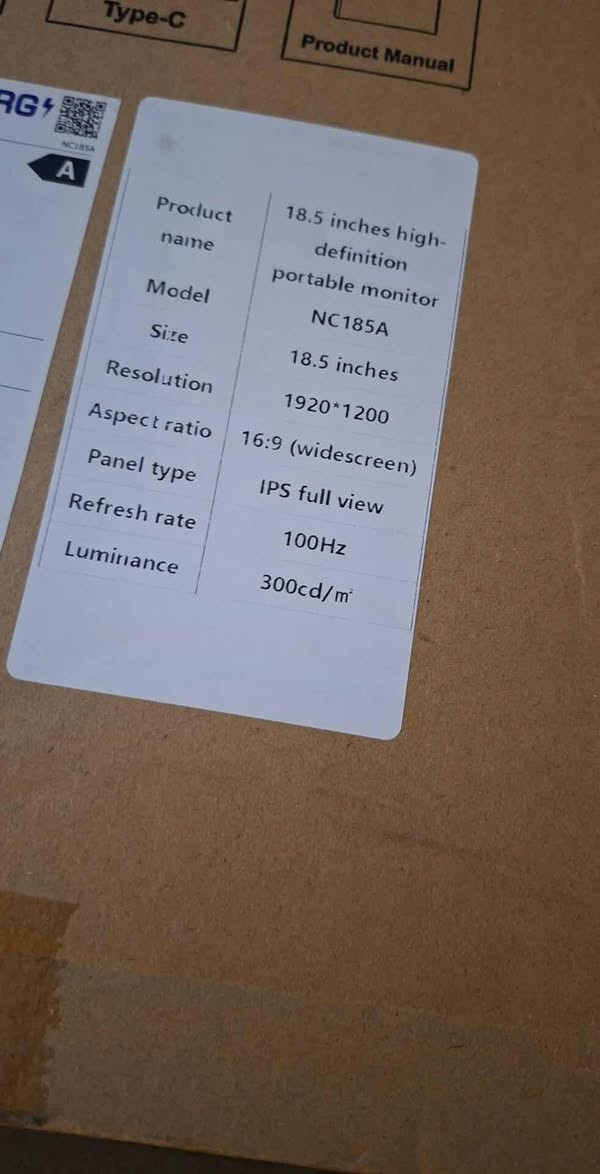 Type-C
Product Manual
RG
NC185A
A
Product name
18.5 inches high-
definition
portable monitor
Model
NC185A
Size
18.5 inches
Resolution
1920*1200
Aspect ratio
16:9 (widescreen)
Panel type
IPS full view
Refresh rate
100Hz
Luminance
300cd/m²